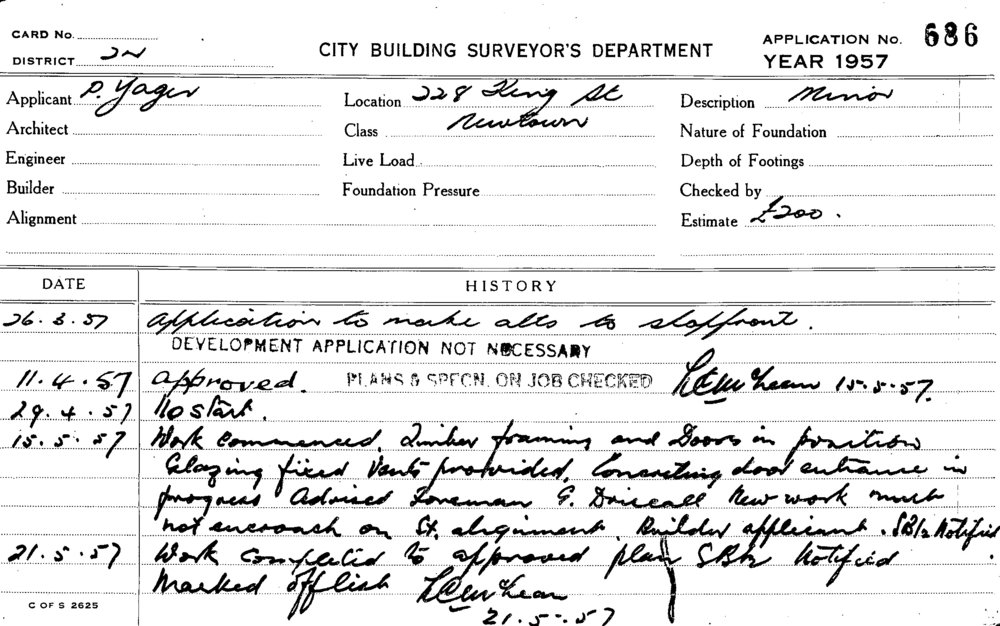 CARD No.
DISTRICT 2N
CITY BUILDING SURVEYOR'S DEPARTMENT
APPLICATION No. 686
YEAR 1957
Applicant P. Yager
Location 228 King St
Description Minor
Architect
Class Newtown
Nature of Foundation
Engineer
Live Load
Depth of Footings
Builder
Foundation Pressure
Checked by
Alignment
Estimate £200.
DATE HISTORY
26.3.57 Application to make alts to shopfront.
DEVELOPMENT APPLICATION NOT NECESSARY
11.4.57 Approved. PLANS & SPECN. ON JOB CHECKED 15.5.57.
29.4.57 No start.
15.5.57 Work commenced, Timber framing and Doors in position
Glazing fixed Vents provided, Concreting door entrance in
progress Advised Foreman G. Driscall New work must
not encroach on St. alignment. Builder applicant. Notified
21.5.57 Work completed to approved plan Notified
Marked off list
21.5.57
C OF S 2625